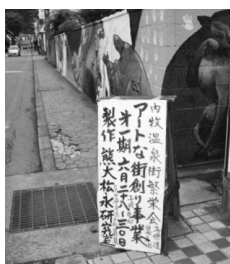 内牧温泉街繁栄会
アートな街創り事業
才一期 六月二十八〜三〇日
製作 熊大松永研究室